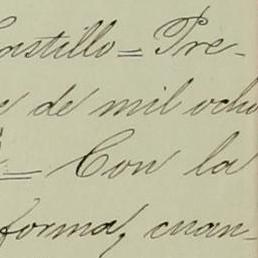 Castillo = Pre-
e de mil ocho
= Con la
forma, cuan-